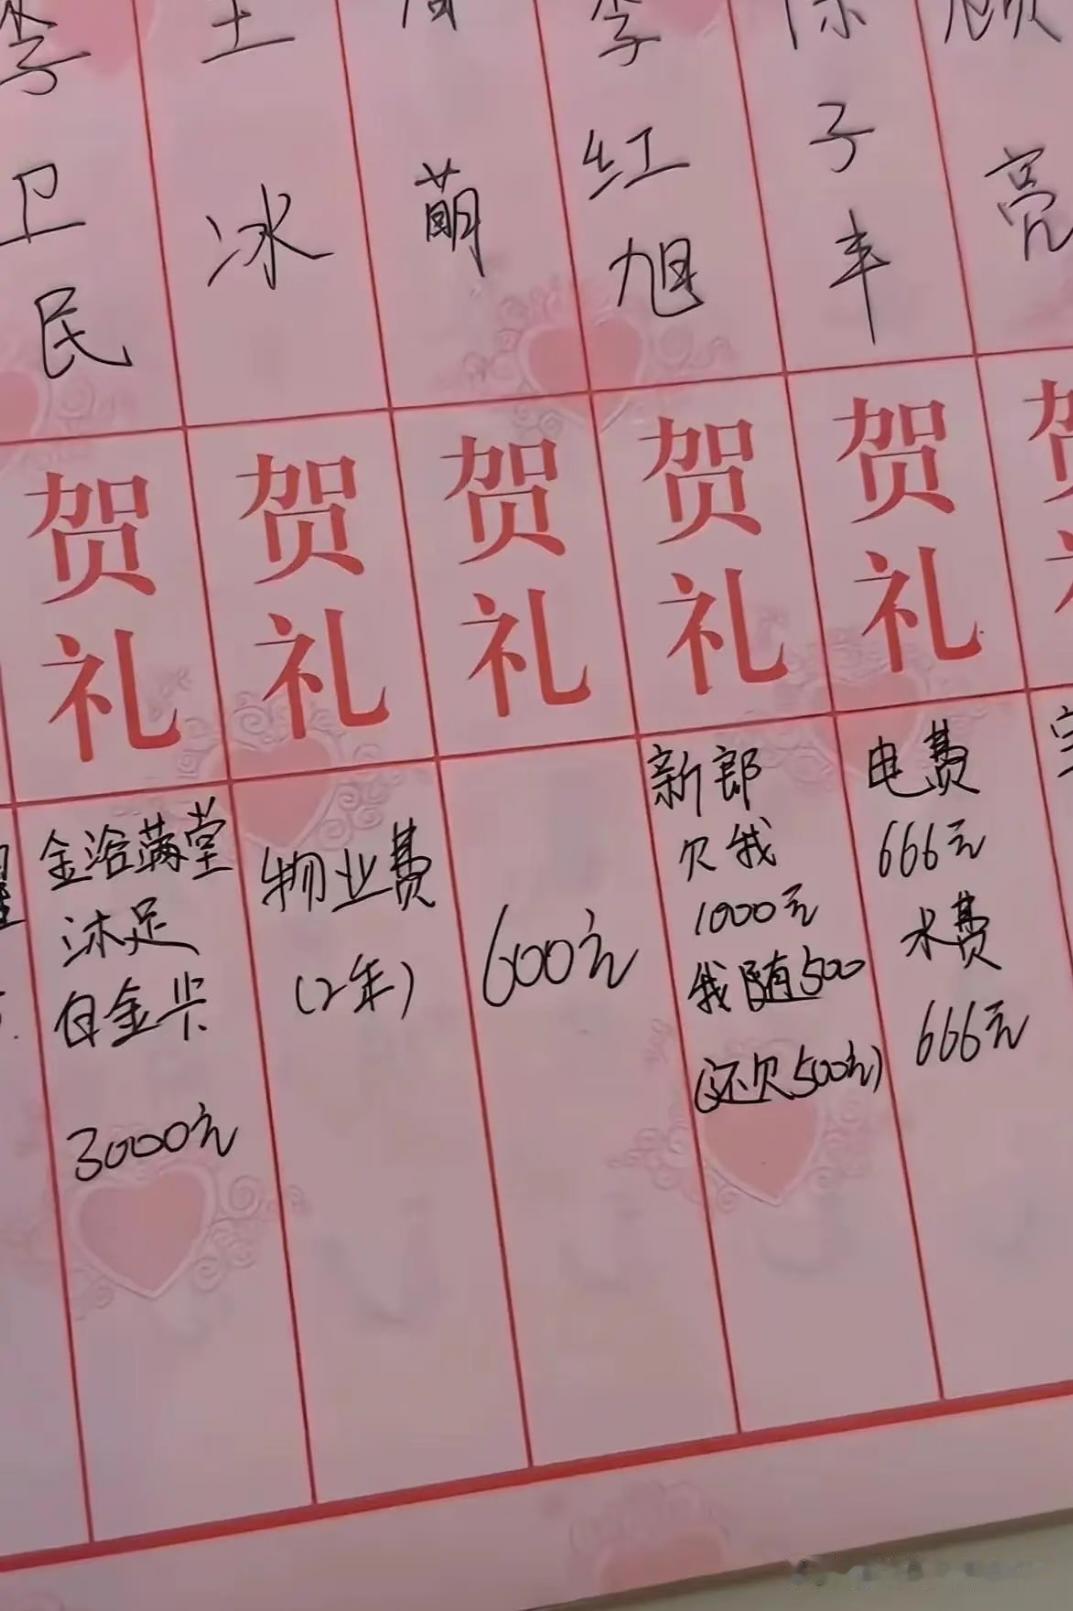 李卫民
贺礼
金浴满堂
沐足
白金卡
3000元
王冰
贺礼
物业费
(2年)
萌
贺礼
600元
李红旭
贺礼
新郎
欠我
1000元
我随500
(还欠500元)
陈子丰
贺礼
电费
666元
水费
666元
顾亮
贺